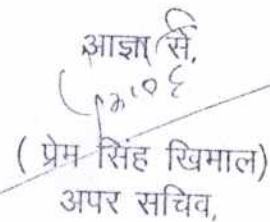 आज्ञा से,
( प्रेम सिंह खिमाल)
अपर सचिव,